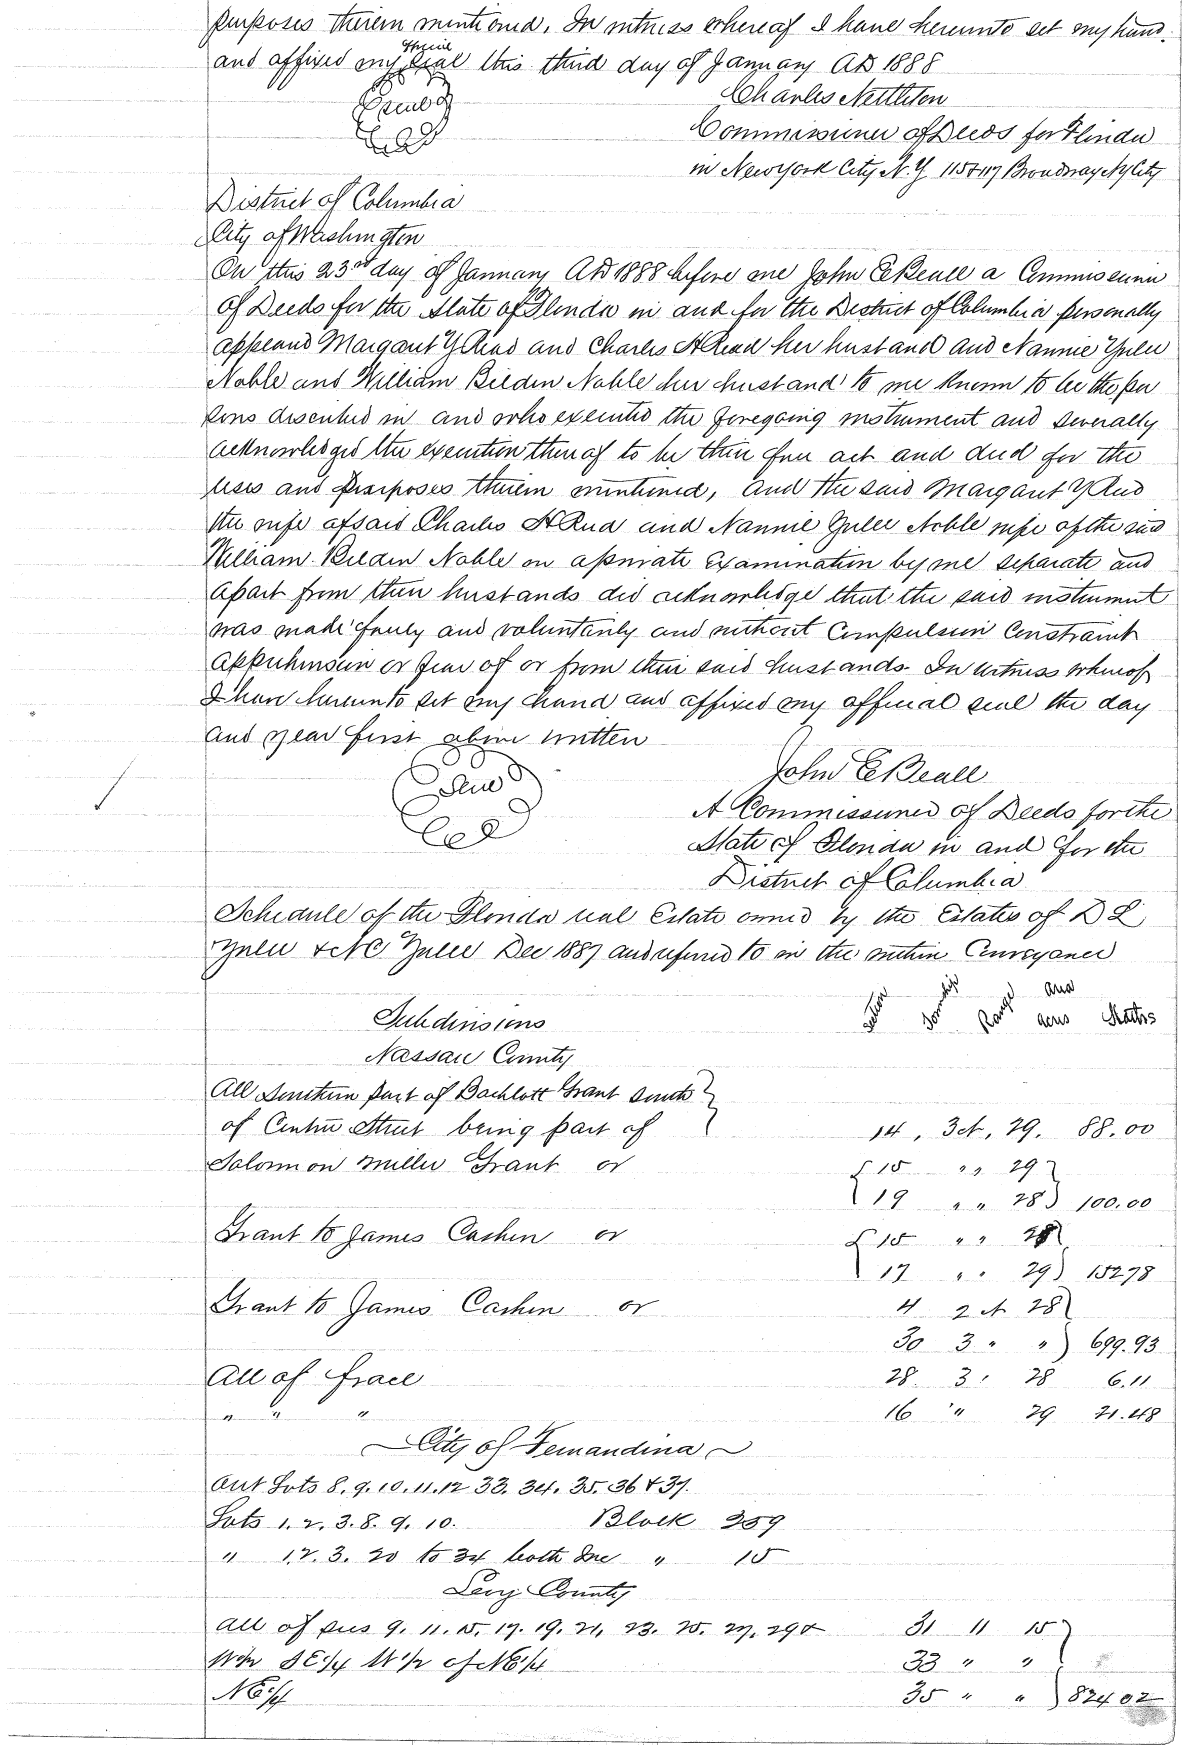 purposes therein mentioned. In witness whereof I have hereunto set my hand
and affixed my official seal this third day of January AD 1888
Charles Nettleton
Commissioner of Deeds for Florida
in New York City N.Y 115 & 117 Broadway NyCity
District of Columbia
City of Washington
On this 23rd day of January AD 1888 before me John E Beall a Commissioner
of Deeds for the State of Florida in and for the District of Columbia personally
appeared Margaret Y Read and Charles H Read her husband and Nannie Yulee
Noble and William Belden Noble her husband to me known to be the per
sons described in and who executed the foregoing instrument and severally
acknowledged the execution thereof to be their free act and deed for the
uses and purposes therein mentioned, and the said Margaret Y Read
the wife of said Charles H Read and Nannie Yulee Noble wife of the said
William Belden Noble on a private examination by me separate and
apart from their husbands did acknowledge that the said instrument
was made freely and voluntarily and without Compulsion Constraint
apprehension or fear of or from their said husbands. In witness whereof
I have hereunto set my hand and affixed my official seal the day
and year first above written
John E Beall
A Commissioner of Deeds for the
State of Florida in and for the
District of Columbia
Schedule of the Florida real Estate owned by the Estates of D L
Yulee & N C Yulee Dec 1887 and referred to in the within Conveyance
Section Township Range and
acres
Subdivisions
Nassau County
All Southern part of Bachlott Grant South
of Centre Street being part of 14, 3N, 29. 88.00
Solomon Miller Grant or 15 " " 29
19 " " 28 100.00
Grant to James Cashen or 15 " " 28
17 " " 29 15278
Grant to James Cashen or 4 2 N 28
30 3 " " 699.93
All of fracl 28 3 " 28 6.11
" " " 16 " 29 21.48
City of Fernandina
Out Lots 8. 9. 10. 11. 12 33. 34. 35. 36 & 37.
Lots 1. 2. 3. 8. 9. 10. Block 259
" 1. 2. 3. 20 to 34 both Inc " 15
Levy County
All of secs 9. 11. 15. 17. 19. 21. 23. 25. 27. 29 & 31 11 15
W1/2 SE1/4 W1/2 of NE1/4 33 " "
NE1/4 35 " " 8240 2